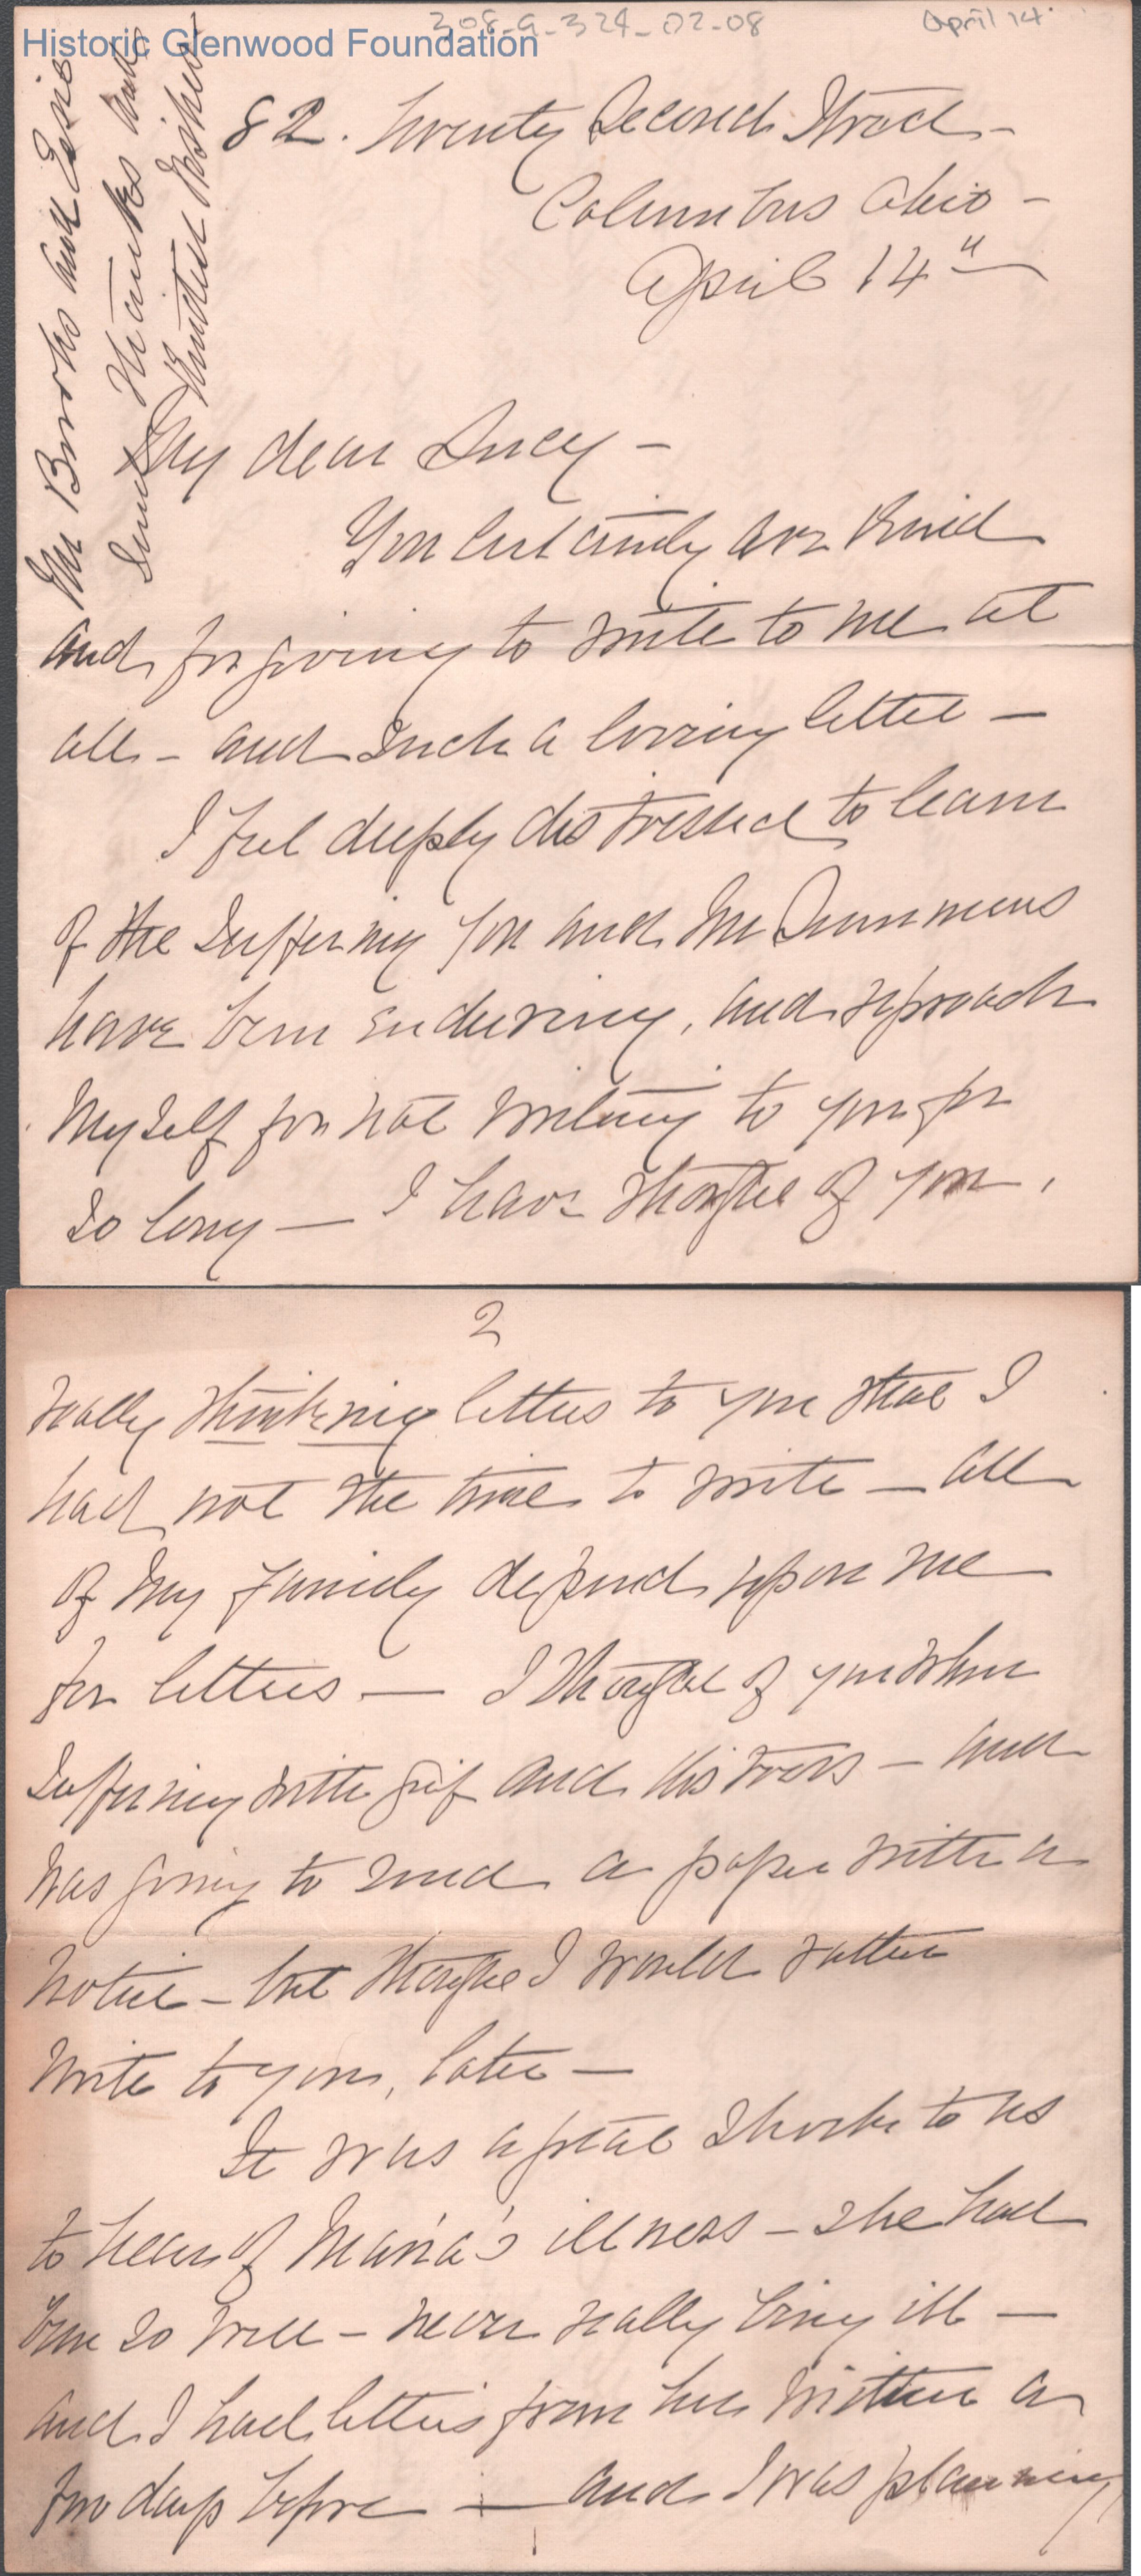 Historic Glenwood Foundation
308-9-324-02-08
April 14
82. Twenty Second Street -
Columbus Ohio -
April 14"
My dear Lucy -
You certainly are kind
and forgiving to write to me at
all - and such a loving letter -
I feel deeply distressed to learn
of the suffering you and Mr Summens
have been enduring, and reproach
myself for not writing to you for
so long — I have thought of you,
2
really thinking letters to you that I
had not the time to write — All
of my family depend upon me
for letters — I thought of you when
suffering with grief and distress - and
was going to send a paper with a
notice - but thought I would rather
write to you, later —
It was a great shock to us
to hear of Maria's illness - she had
been so well - never really being ill —
and I had letters from her written a
few days before — and I was planning,
Mr Brooks and Essie
send thanks and
kindest wishes